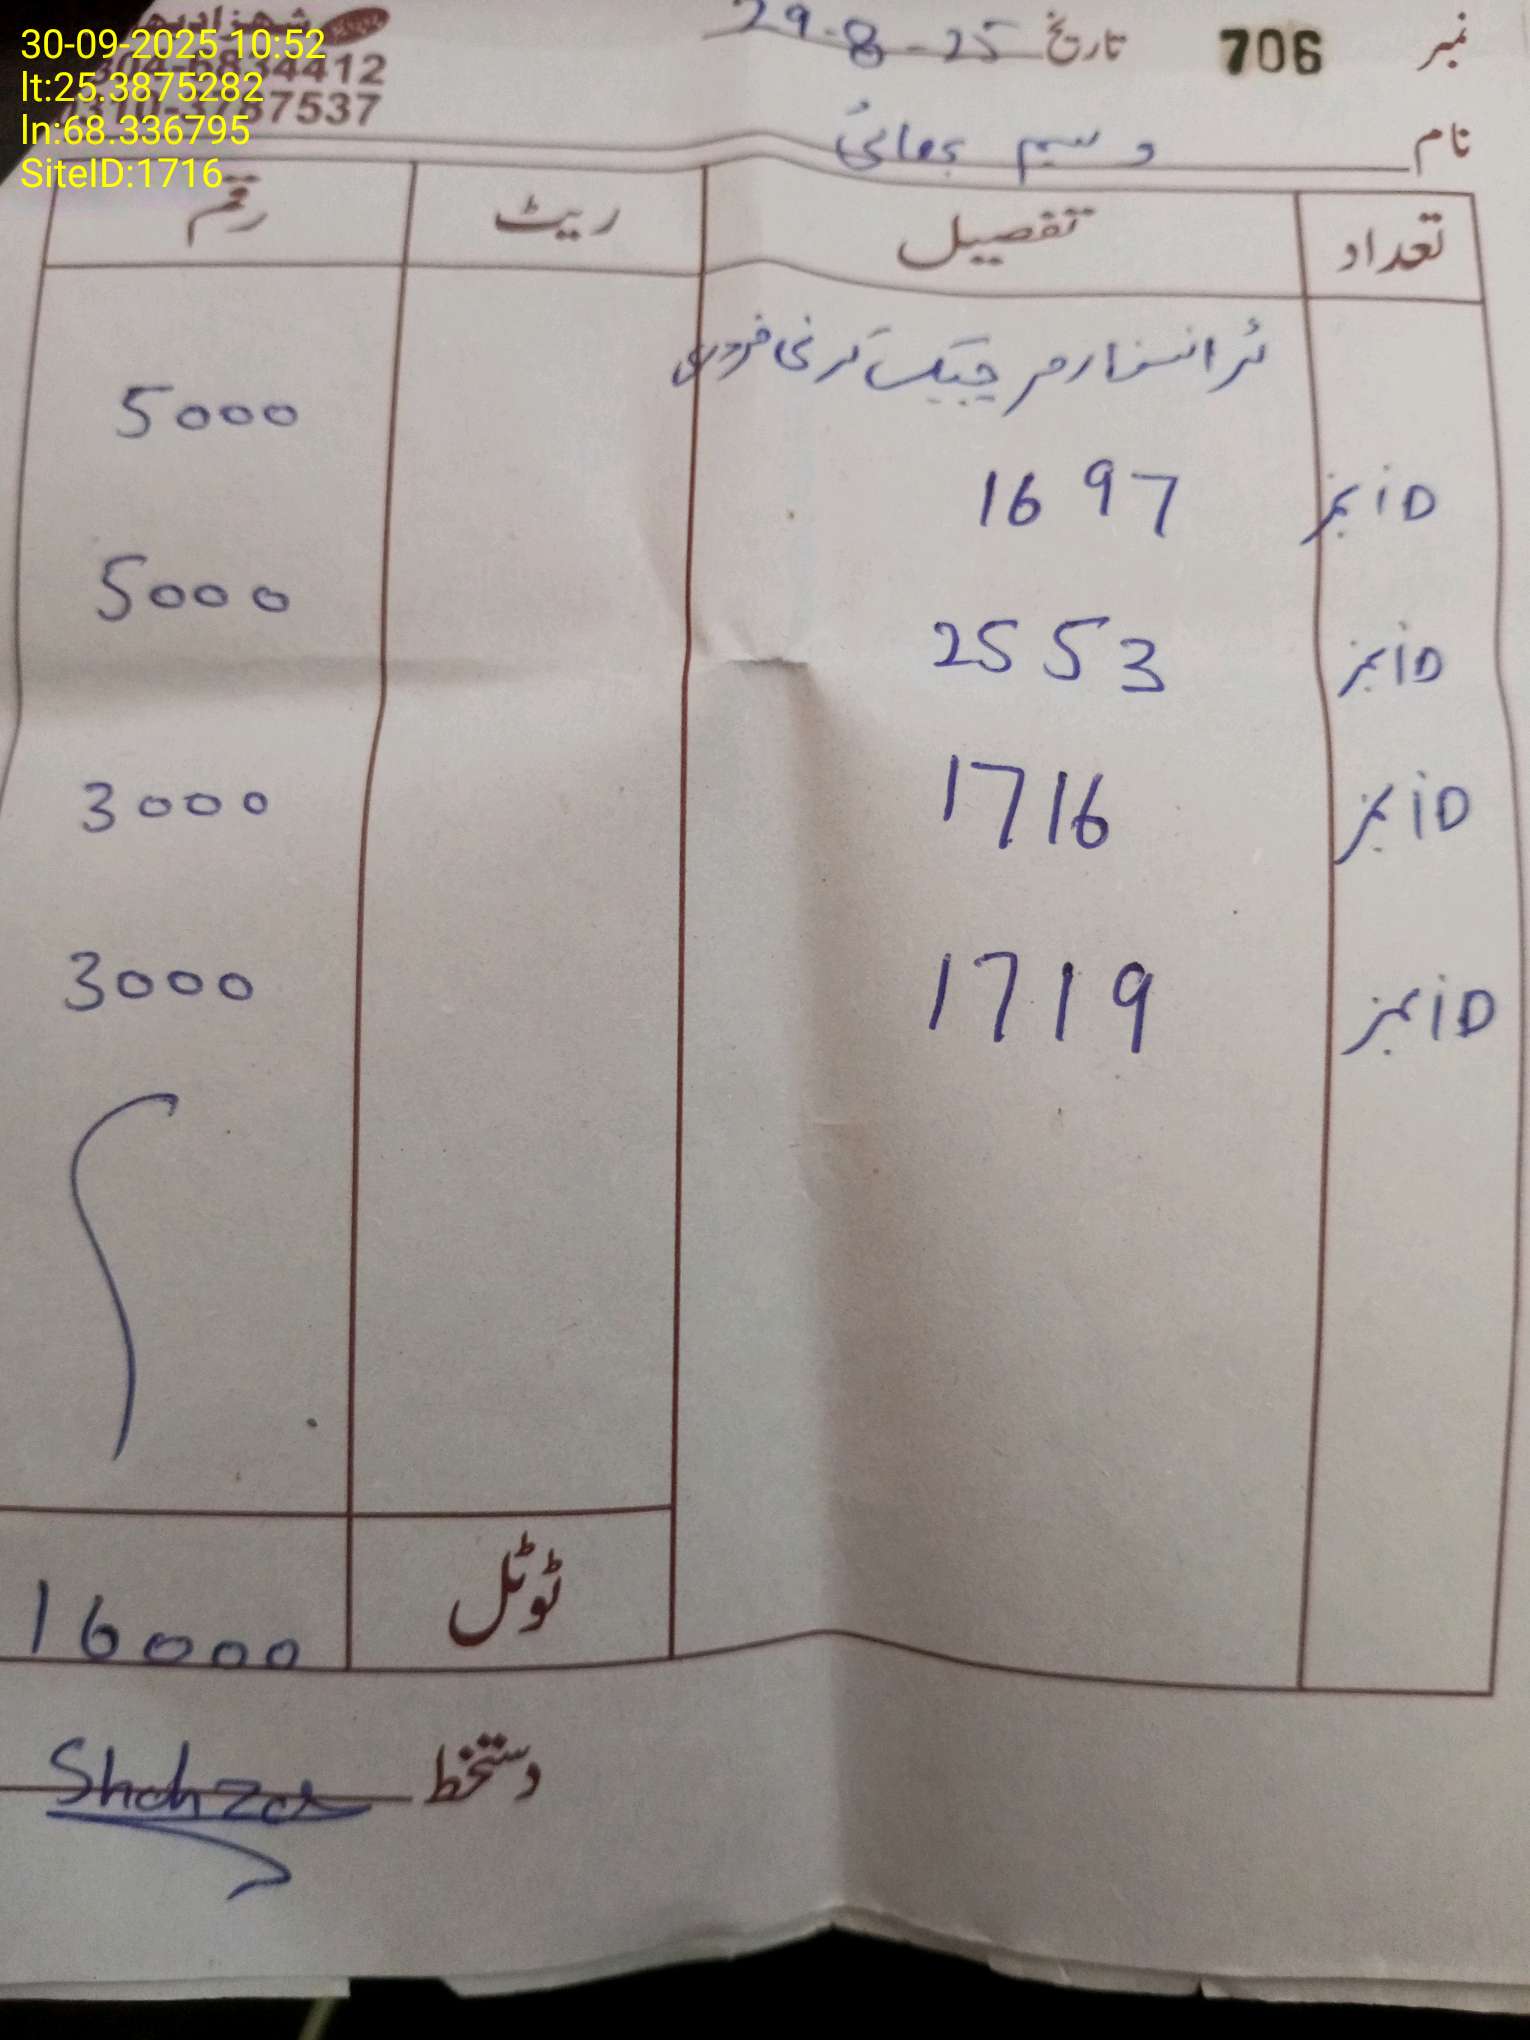 30-09-2025 10:52
lt:25.3875282
ln:68.336795
SiteID:1716
شہزاد
7537
نمبر 706 تاریخ 29-8-25
نام وسیم بھائی
تعداد تفصیل ریٹ رقم
ٹرانسفارمر چیک کرنی مزدوری
5000
iD نمبر 1697
5000
iD نمبر 2553
3000
iD نمبر 1716
3000
iD نمبر 1719
ٹوٹل 16000
دستخط Shahzad